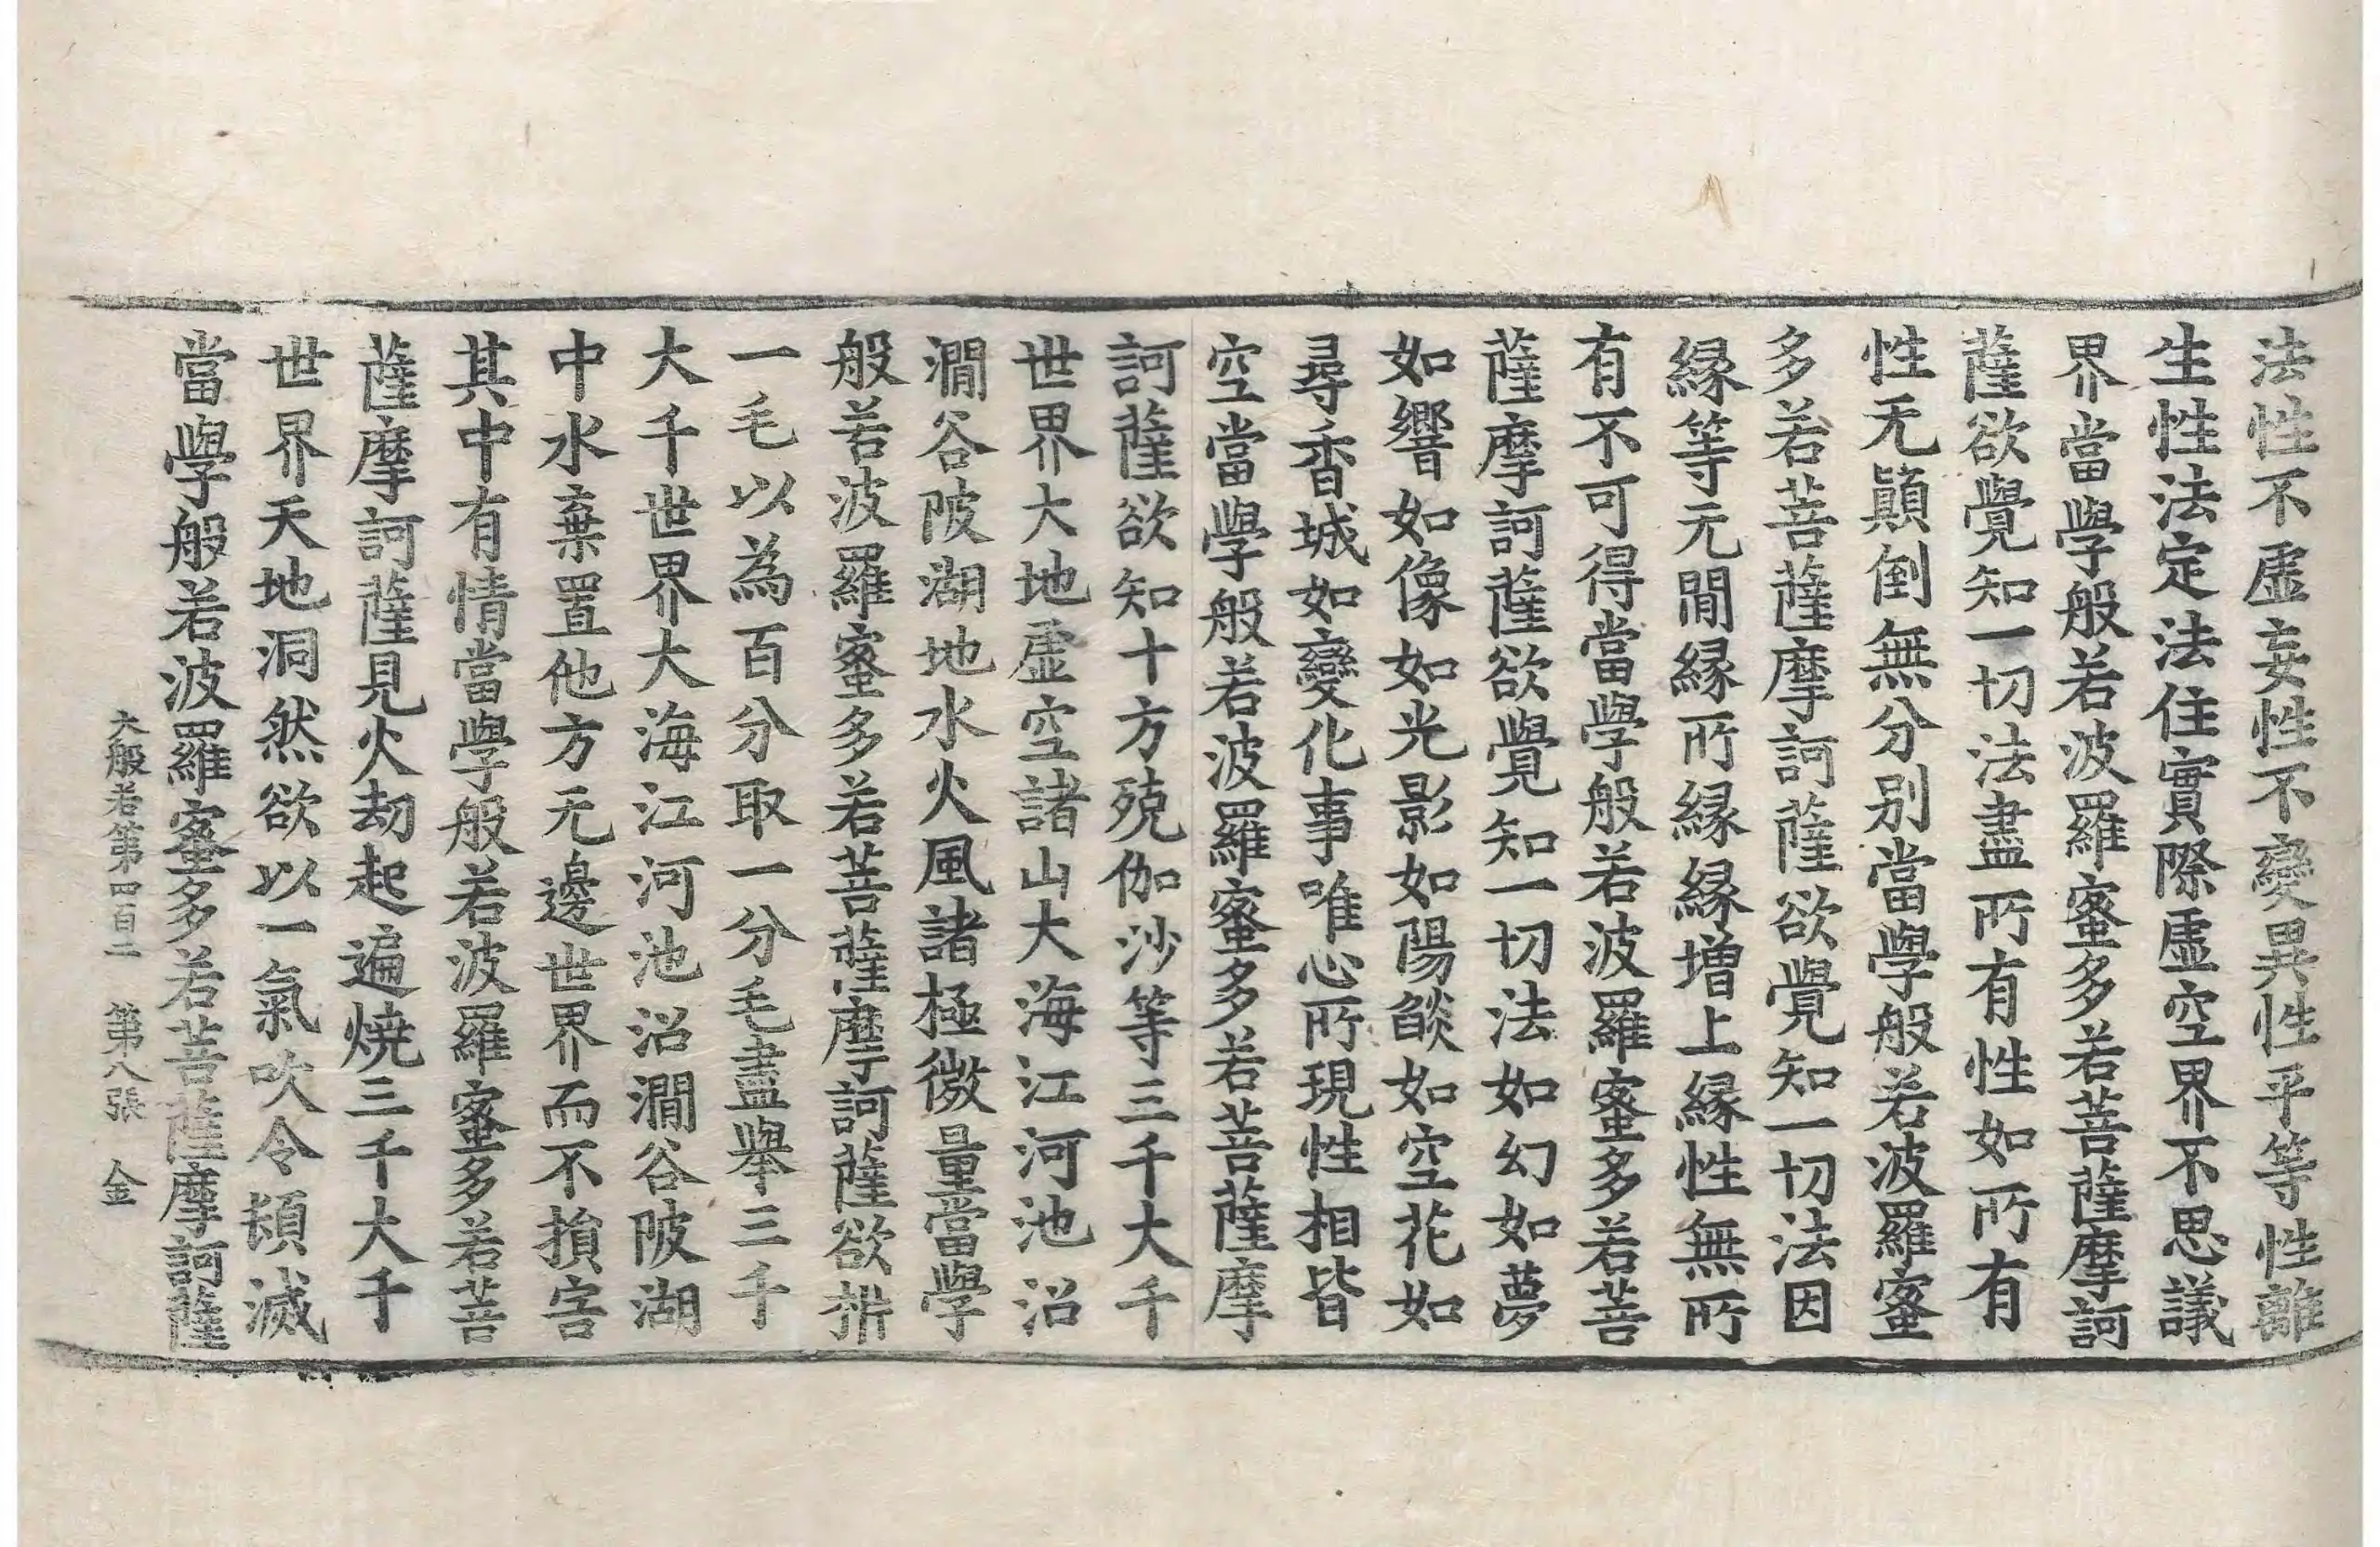 法性不虛妄性不變異性平等性離
生性法定法住實際虛空界不思議
界當學般若波羅蜜多若菩薩摩訶
薩欲覺知一切法盡所有性如所有
性无顛倒無分別當學般若波羅蜜
多若菩薩摩訶薩欲覺知一切法因
緣等无間緣所緣緣增上緣性無所
有不可得當學般若波羅蜜多若菩
薩摩訶薩欲覺知一切法如幻如夢
如響如像如光影如陽焰如空花如
尋香城如變化事唯心所現性相皆
空當學般若波羅蜜多若菩薩摩
訶薩欲知十方殑伽沙等三千大千
世界大地虛空諸山大海江河池沼
澗谷陂湖地水火風諸極微量當學
般若波羅蜜多若菩薩摩訶薩欲㭊
一毛以為百分取一分毛盡舉三千
大千世界大海江河池沼澗谷陂湖
中水棄置他方无邊世界而不損害
其中有情當學般若波羅蜜多若菩
薩摩訶薩見火劫起遍燒三千大千
世界天地洞然欲以一氣吹令頓滅
當學般若波羅蜜多若菩薩摩訶薩
大般若第四百二 第八張 金